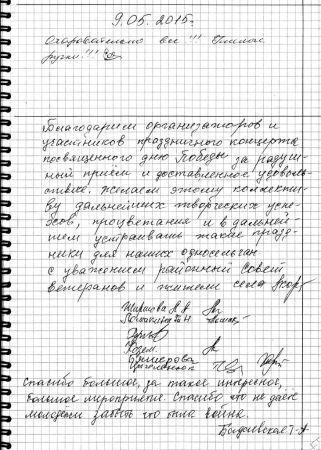 9.05.2015г.
Очаровательно все!!!
ручки!!!
Благодарим организаторов и
участников праздничного концерта
посвященного дню Победы за радуш-
ный приём и доставленное удоволь-
ствие. Желаем этому коллекти-
ву дальнейших творческих успе-
хов, процветания и в дальней-
шем устраивать такие празд-
ники для наших односельчан
с уважением районный Совет
ветеранов и жители села
Спасибо большое, за такое интересное,
большое мероприятие. Спасибо что не даёте
молодежи забыть что такое война.